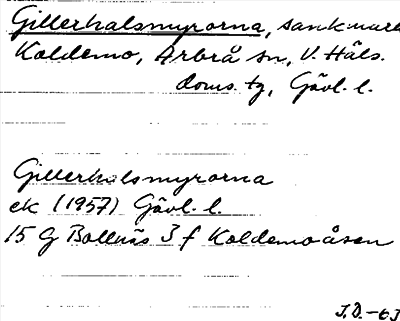 Gillerhalsmyrorna, sankmark
Koldemo, Arbrå sn, V. Häls.
doms. tg, Gävl. l.
Gillerhalsmyrorna
ek (1957) Gävl. l.
15 G Bollnäs 3 f Koldemoåsen
J.D.-63